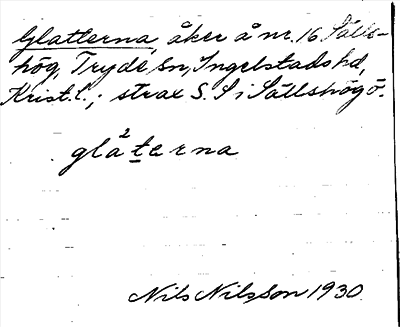 Glatterna, åker å nr. 16 Sälls-
hög, Tryde sn, Ingelstads hd,
Krist. l.; strax S. S i Sällshög ö.
glá²terna
Nils Nilsson 1930.